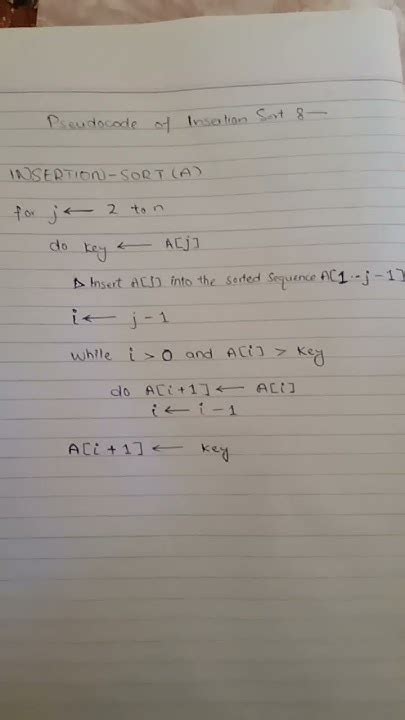 Pseudocode of Insertion Sort :-
INSERTION-SORT(A)
for j ← 2 to n
do key ← A[j]
▷ Insert A[j] into the sorted sequence A[1..j-1]
i ← j-1
while i > 0 and A[i] > key
do A[i+1] ← A[i]
i ← i-1
A[i+1] ← key